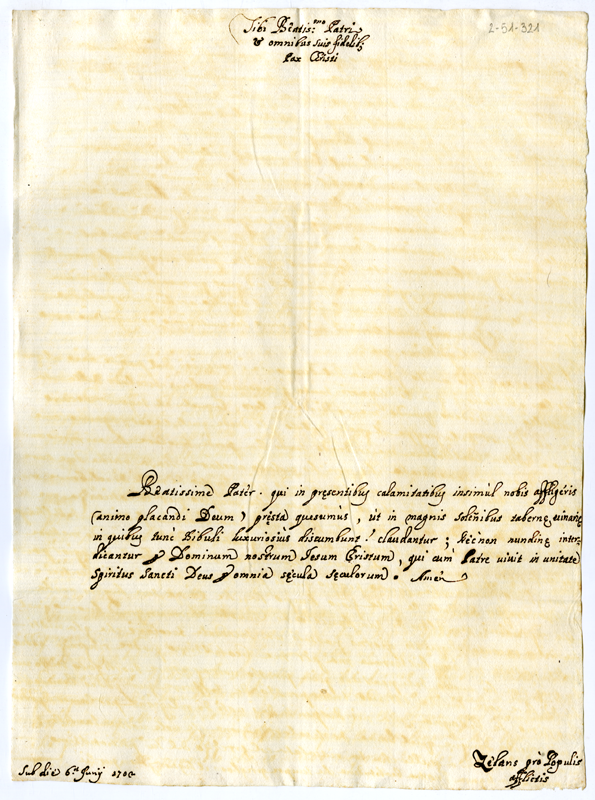 2-51-321
Tibi Beatis:mo Patri
& omnibus suis fidelib;
Pax Christi
Beatissime Pater. qui in pręsentibus calamitatibus insimùl nobis affligeris
(animo placandi Deum) pręsta quęsumùs, ùt in magnis Solēnibus tabernę uinarię,
in quibus tunc Bibuli luxuriosiùs discumbunt claudantur; Nec non nundinę inter-
dicantur p Dominum nostrum Iesum Cristum, qui cùm Patre viuit in unitate
Spiritus Sancti Deus p omnia sęcula sęculorum. Amen
Zelans pro Populis
afflictis
Sub die 6.a Junij